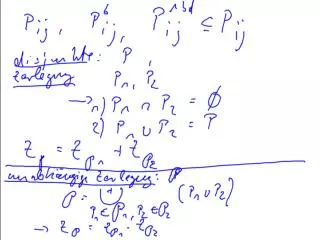 P_ij, P_ij^b, P_ij^nbd ⊆ P_ij
disjunkte: P,
Zerlegung P_1, P_2
→ 1) P_1 ∩ P_2 = ∅
2) P_1 ∪ P_2 = P
Z_P = Z_P1 + Z_P2
unabhängige Zerlegung: P
P = ⊎ (P_1 ∪ P_2)
P_1 ∈ P_1, P_2 ∈ P_2
→ Z_P = Z_P1 · Z_P2